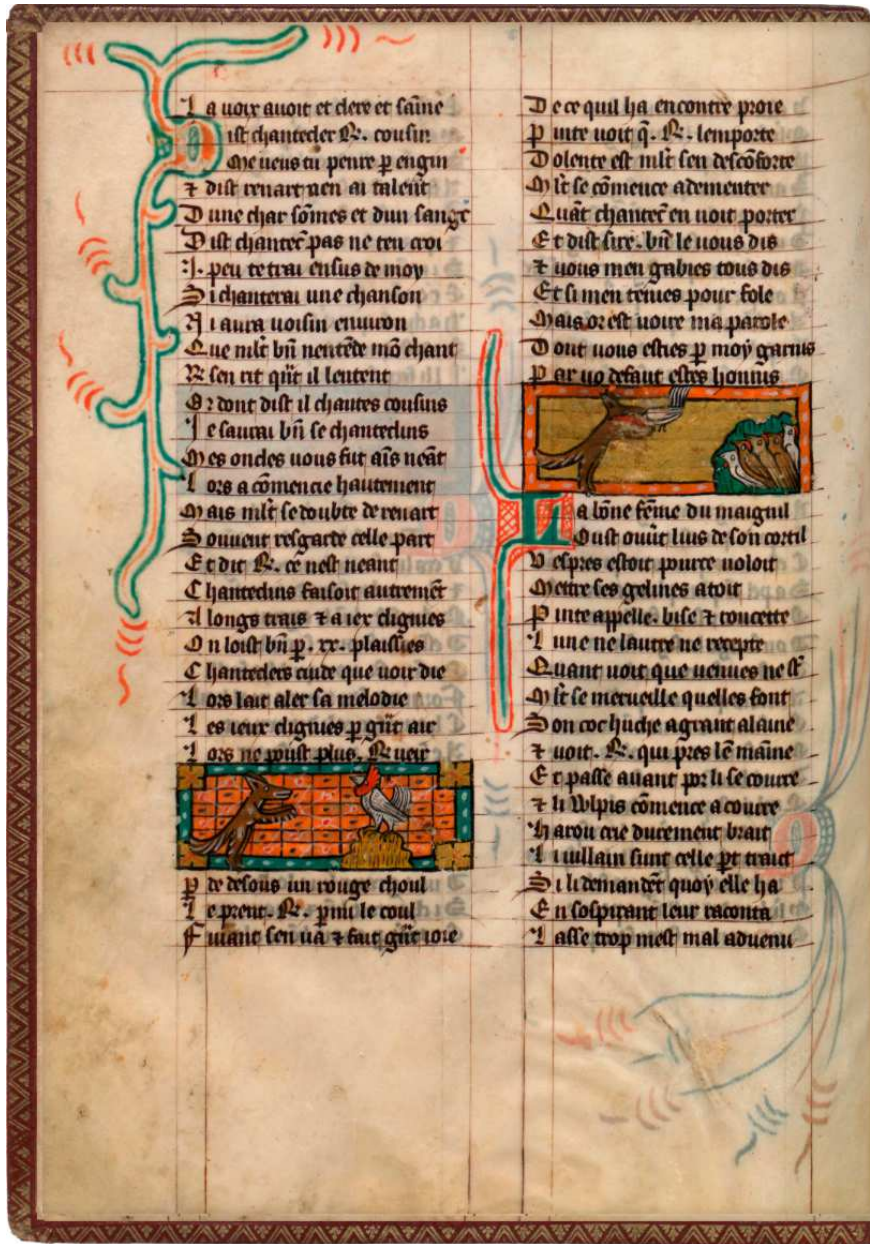 La uoix auoit et clere et saine
Dist chantecler .R. cousin
Me ueus tu penre p engin
⁊ dist renart nen ai talent
Dune char somes et dun sangr
Dist chantec̄ pas ne ten croi
.I. peu te trai ensus de moy
Si chanterai une chanson
Ni aura uoisin enuiron
Que mlt bn̄ nentēde mō chant
R. sen rit qn̄t il lentent
Or dont dist il chantes cousins
Je saurai bn̄ se chanteclins
Mes oncles uous fut ains neāt
Lors a cōmencie hautement
Mais mlt se doubte de renart
Souuent resgarde celle part
Et dit .R. ce nest neant
Chanteclins faisoit autremēt
A longs trais ⁊ a iex clignies
On loist bn̄ p .xx. plaissies
Chanteclers cuide que uoir die
Lors lait aler sa melodie
Les ieux cligniers p gn̄t air
Lors ne poust plus .R. ueir
P de desous un rouge choul
Le prent .R. pmi le coul
Fuiant sen ua ⁊ fait gn̄t ioie
De ce quil ha encontre proie
Pinte uoit q̄ .R. lemporte
Dolente est mlt sen descōforte
Mlt se cōmence a dementer
Quāt chantec̄ en uoit porter
Et dist sire . bn̄ le uous dis
⁊ uous men gabies tous dis
Et si men tenies pour fole
Mais or est uoire ma parole
Dont uous esties p moy garnis
Par uo defaut estes honnis
La bōne fēme du maignil
Oust ouūt luis de son cortil
Vespres estoit pource uoloit
Mettre ses gelines a toit
Pinte appelle . bise ⁊ roucette
Lune ne lautre ne recepte
Quant uoit que uenues ne st̄
Mlt se merueille quelles font
Son coc huche a grant alaine
⁊ uoit .R. qui pres lē maine
Et passe auant por li secourre
⁊ li wlpis cōmence a courre
Harou crie durement brait
Li uillain sunt celle pt trait
Si li demandēt quoy elle ha
En sospirant leur raconta
Lasse trop mest mal aduenu